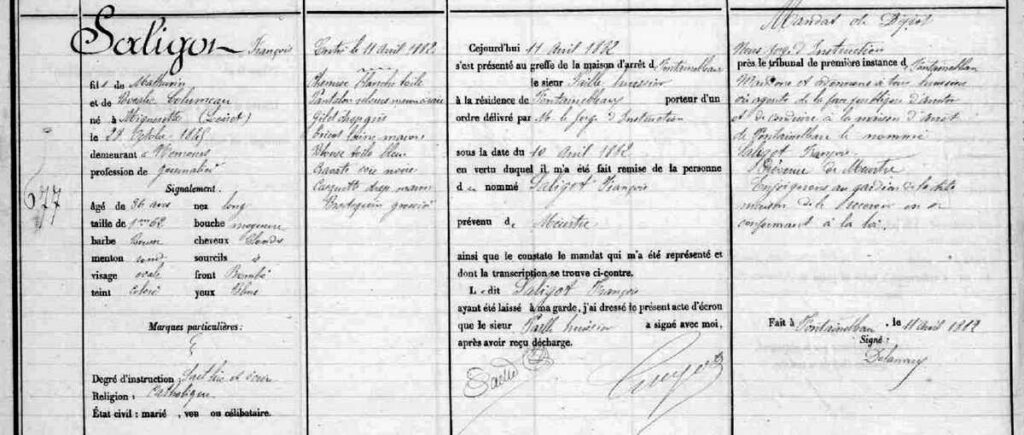 677
Saligot François
fils de Mathurin
et de
né à Mignerette (Loiret)
le 28 Octobre 1845
demeurant à Nemours
profession de journalier
Signalement.
âgé de 36 ans nez long
taille de 1m 62 bouche moyenne
barbe cheveux blonds
menton rond sourcils d
visage ovale front Bombé
teint coloré yeux bleus
Marques particulières :
Degré d'instruction : Sait lire et écrire
Religion : Catholique
État civil : marié, veu ou célibataire.
Entré le 11 avril 1882
Chemise blanche toile
Pantalon velours
Gilet drap gris
Tricot laine marron
Blouse toile bleu
Cravate soie noire
Casquette drap marron
Brodequin
Cejourd'hui 11 Avril 1882
s'est présenté au greffe de la maison d'arrêt d Fontainebleau
le sieur huissier
à la résidence de Fontainebleau porteur d'un
ordre délivré par M. le Juge d'Instruction
sous la date du 10 Avril 1882
en vertu duquel il m'a été fait remise de la personne
d u nommé Saligot François
prévenu d e Meurtre
ainsi que le constate le mandat qui m'a été représenté et
dont la transcription se trouve ci-contre.
L e dit Saligot François
ayant été laissé à ma garde, j'ai dressé le présent acte d'écrou
que le sieur huissier a signé avec moi,
après avoir reçu décharge.
Mandat de Dépôt
Nous Juge d'Instruction
près le tribunal de première instance d Fontainebleau
Mandons et ordonnons à tous huissiers
ou agents de la force publique d'arrêter
et de conduire à la maison d'arrêt
de Fontainebleau le nommé
Saligot François
Prévenu de Meurtre
Enjoignons au gardien de la dite
maison de le Recevoir en se
conformant à la loi.
Fait à Fontainebleau, le 11 avril 1882
Signé :
Delaunay